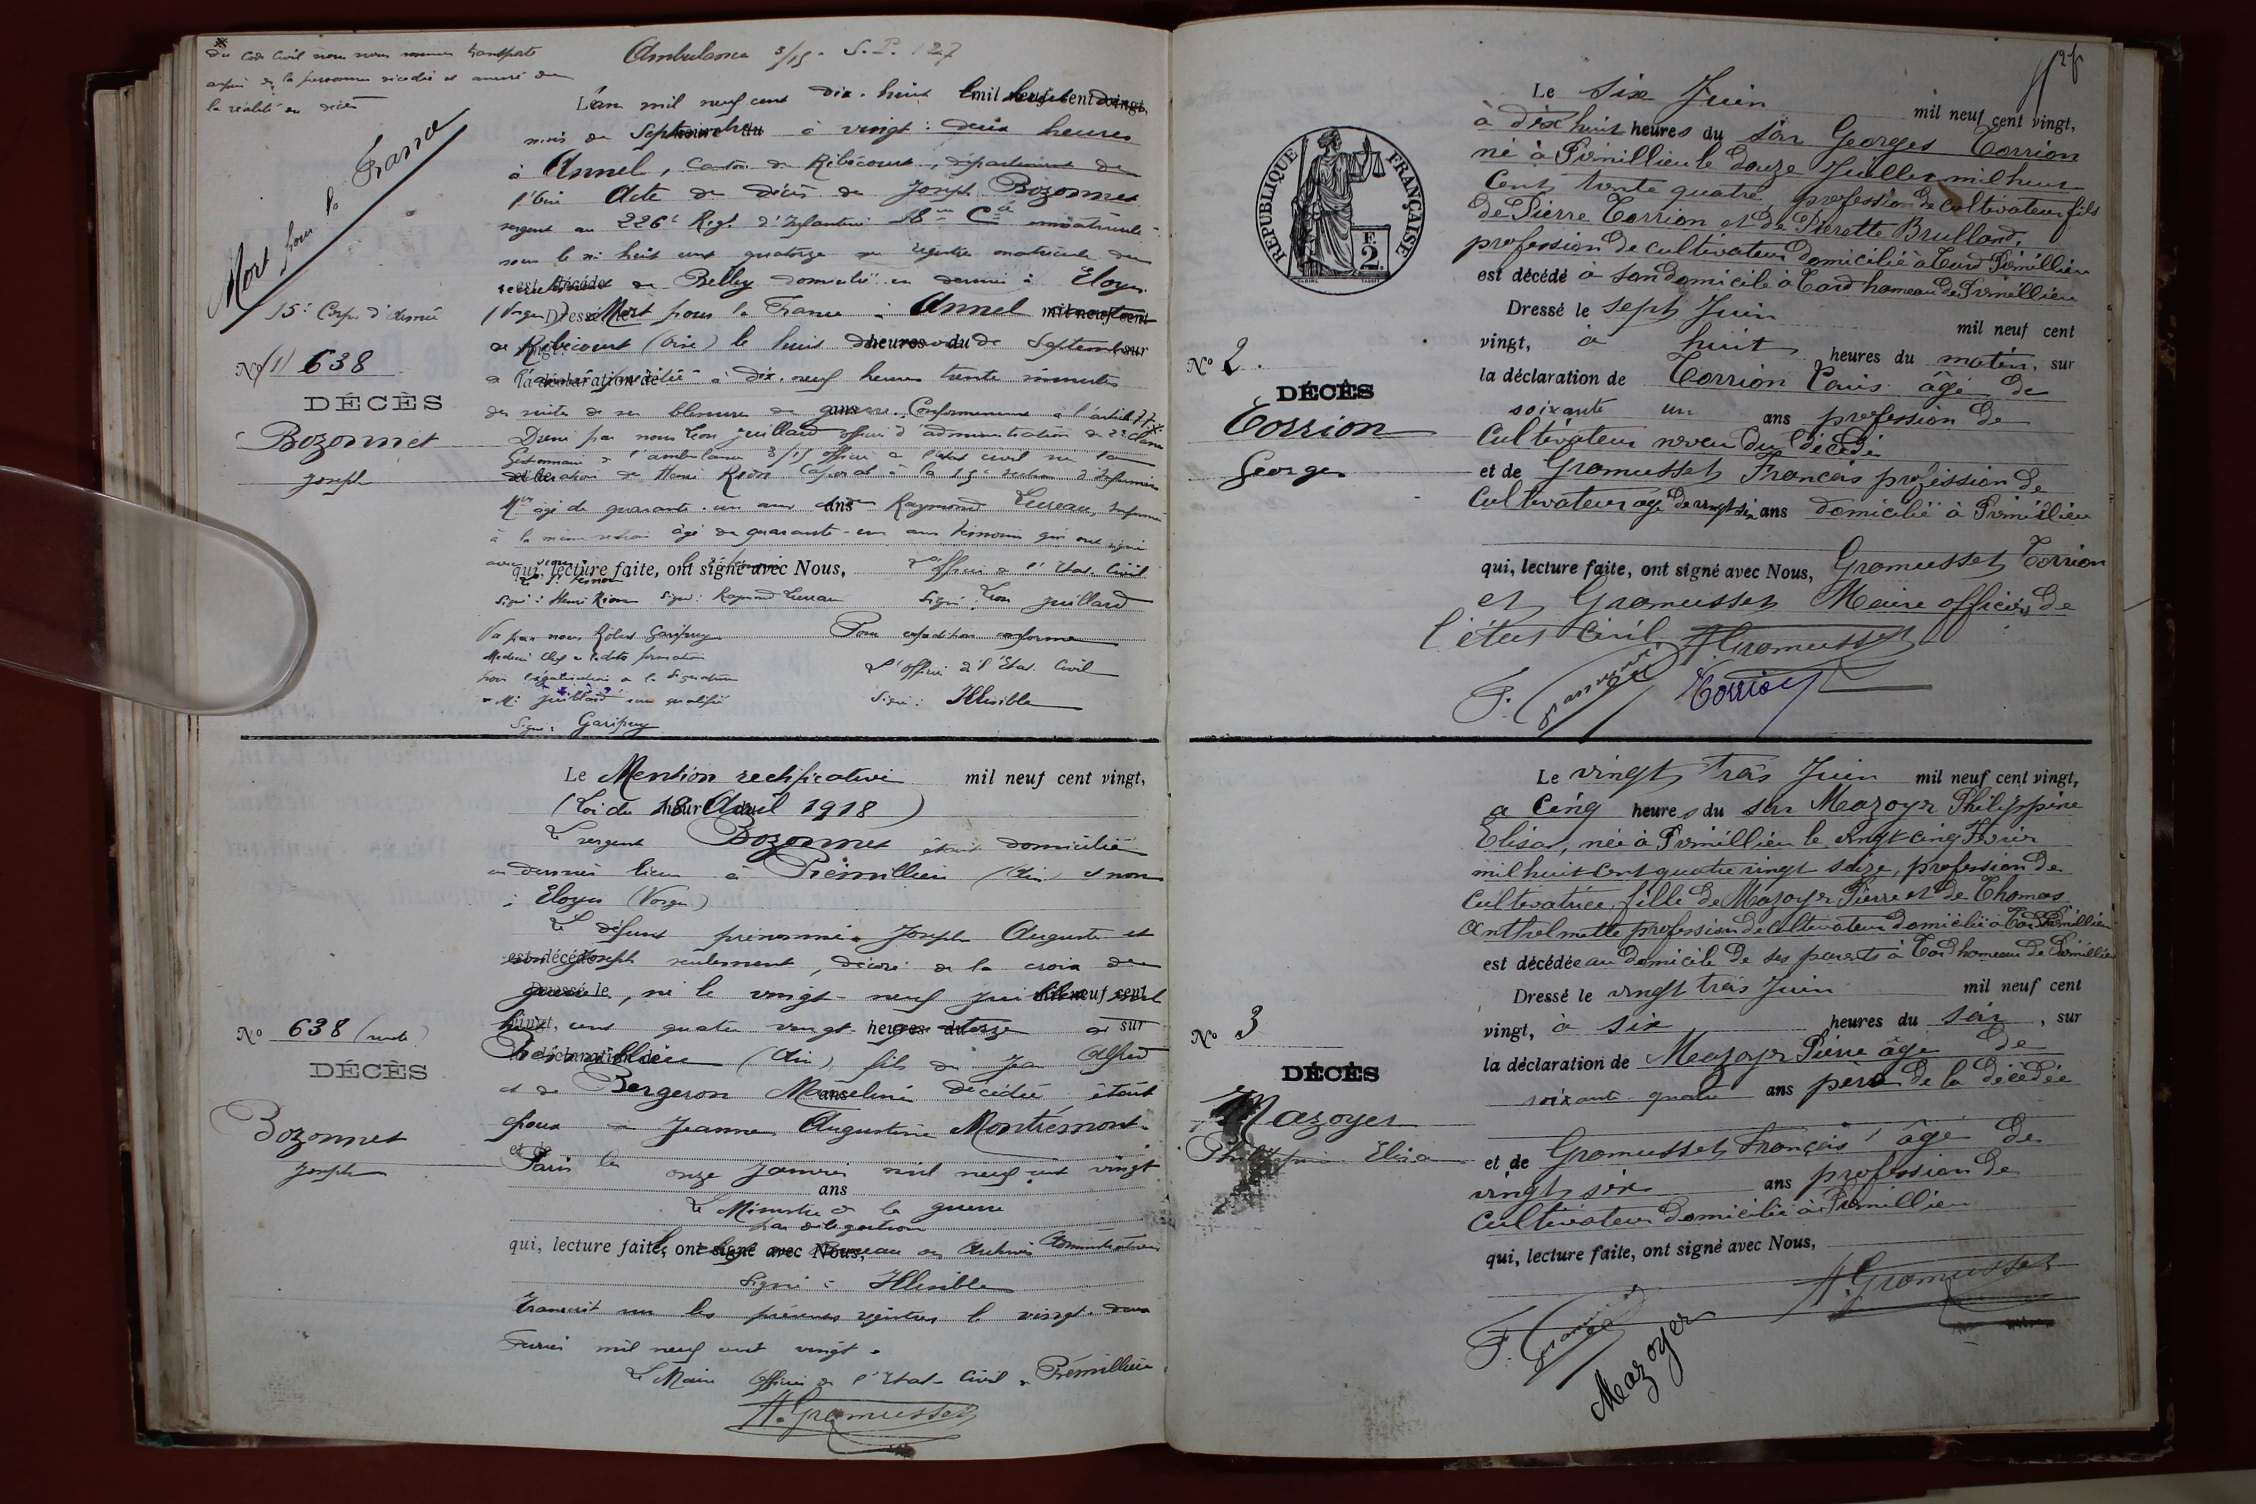 du Code Civil nous nous sommes transporté
auprès de la personne décédée et assuré de
la réalité du décès
Mort pour la France
15e Corps d'Armée
No (1) 638
DÉCÈS
Bozonnet
Joseph
Ambulance 3/15 - S.P. 127
L'an mil neuf cent dix-huit le huit du
mois de Septembre à vingt-deux heures
à Annel, Canton de Ribécourt, département de
l'Oise Acte de décès de Joseph Bozonnet
sergent au 226e Régt d'Infanterie 18e Cie immatriculé
sous le no huit cent quatorze au registre matricule du
recrutement de Belley domicilié en dernier à Eloyes
(Vosges) Mort pour la France à Annel
de Ribécourt (Oise) le huit du mois de Septembre
à dix-neuf heures trente minutes
des suites de ses blessures de guerre. Conformément à l'article 77
Dressé par nous Léon Juillard officier d'administration de 2e classe
Gestionnaire de l'ambulance 3/15 officier de l'état civil sur la
déclaration de Henri Rion Caporal à la 15e section d'Infirmiers
Mres âgé de quarante-un ans et de Raymond Lureau, infirmier
à la même section âgé de quarante-un ans témoins qui ont signé
avec nous
qui, lecture faite, ont signé avec Nous, L'officier de l'Etat-Civil
Signé : Henri Rion Signé : Raymond Lureau Signé : Léon Juillard
Vu par nous Robert Garipuy Pour expédition conforme
Médecin Chef de ladite formation
pour légalisation de la signature L'Officier de l'Etat-Civil
de Mr Juillard sus qualifié Signé : Illisible
Signé : Garipuy
No 638 (suite)
DÉCÈS
Bozonnet
Joseph
Le Mention rectificative mil neuf cent vingt,
(Loi du 18 Avril 1918)
Le sergent Bozonnet était domicilié
en dernier lieu à Prémillieu (Ain) et non
à Eloyes (Vosges)
Le défunt prénommé Joseph Auguste et
non Joseph seulement, décoré de la croix de
guerre, né le vingt-neuf juillet mil
huit cent quatre vingt quatorze à
Prémillieu (Ain), fils de Jean Alfred
et de Bergeron Marceline décédée, était
époux de Jeanne Augustine Montrémont.
Paris le onze Janvier mil neuf cent vingt
ans
Le Ministre de la guerre
par délégation
qui, lecture faite, ont signé avec Nous, Bureau des Archives Administratives
Signé : Illisible
Transcrit sur les présents registres le vingt-deux
Février mil neuf cent vingt.
Le Maire Officier de l'Etat-Civil de Prémillieu
A. Gromusset
REPUBLIQUE FRANÇAISE
2
No 2
DÉCÈS
Corrion
Georges
Le six Juin mil neuf cent vingt,
à dix huit heures du soir Georges Corrion
né à Prémillieu le douze Juillet mil huit
Cent trente quatre, profession de cultivateur fils
de Pierre Corrion et de Pierette Brulland,
profession de cultivateur domicilié à Tard Prémillieu
est décédé à son domicile à Tard hameau de Prémillieu
Dressé le sept Juin mil neuf cent
vingt, à huit heures du matin, sur
la déclaration de Corrion Louis âgé de
soixante un ans profession de
Cultivateur neveu du décédé
et de Gromusset François profession de
Cultivateur âgé de vingt six ans domicilié à Prémillieu
qui, lecture faite, ont signé avec Nous, Gromusset Corrion
et Gromusset Maire officier de
l'état Civil A. Gromusset
F. Gromusset Corrion
No 3
DÉCÈS
Mazoyer
Philippine Elisa
Le vingt trois Juin mil neuf cent vingt,
a Cinq heures du soir Mazoyer Philippine
Elisa, née à Prémillieu le vingt cinq Février
mil huit cent quatre vingt seize, profession de
Cultivatrice, fille de Mazoyer Pierre et de Thomas
Anthelmette profession de Cultivateur domicilié à Tard Prémillieu
est décédée au domicile de ses parents à Tard hameau de Prémillieu
Dressé le vingt trois Juin mil neuf cent
vingt, à six heures du soir, sur
la déclaration de Mazoyer Pierre âgé de
soixante quatre ans père de la décédée
et de Gromusset François âgé de
vingt six ans profession de
Cultivateur domicilié à Prémillieu
qui, lecture faite, ont signé avec Nous,
A. Gromusset
F. Gromusset
Mazoyer